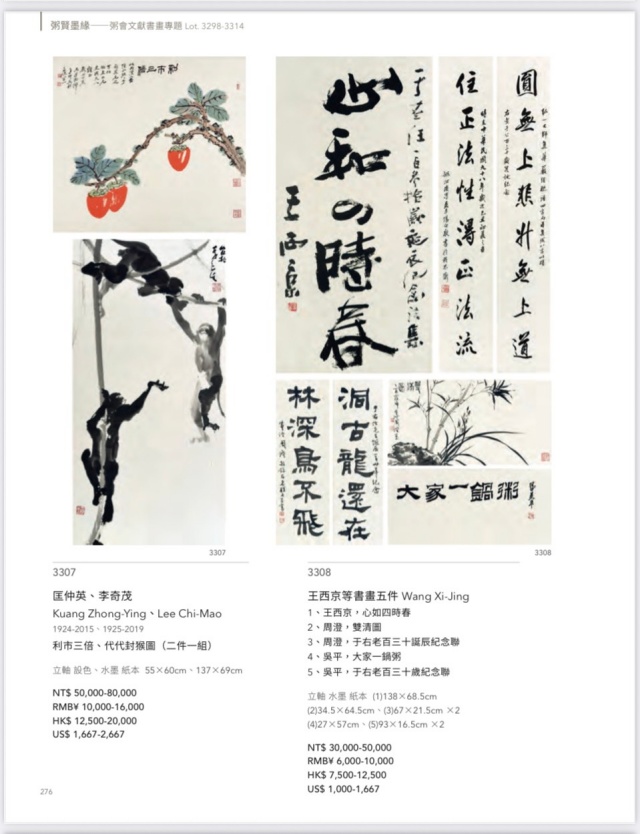 粥賢墨緣——粥會文獻書畫專題 Lot. 3298-3314
利市三倍
心如四時春
王西京
住正法性得正法流
洞古龍還在
林深鳥不飛
大家一鍋粥
3307
3308
3307
匡仲英、李奇茂
Kuang Zhong-Ying、Lee Chi-Mao
1924-2015、1925-2019
利市三倍、代代封猴圖（二件一組）
立軸 設色、水墨 紙本 55×60cm、137×69cm
NT$ 50,000-80,000
RMB¥ 10,000-16,000
HK$ 12,500-20,000
US$ 1,667-2,667
3308
王西京等書畫五件 Wang Xi-Jing
1、王西京，心如四時春
2、周澄，雙清圖
3、周澄，于右老百三十誕辰紀念聯
4、吳平，大家一鍋粥
5、吳平，于右老百三十歲紀念聯
立軸 水墨 紙本 (1)138×68.5cm
(2)34.5×64.5cm、(3)67×21.5cm ×2
(4)27×57cm、(5)93×16.5cm ×2
NT$ 30,000-50,000
RMB¥ 6,000-10,000
HK$ 7,500-12,500
US$ 1,000-1,667
276